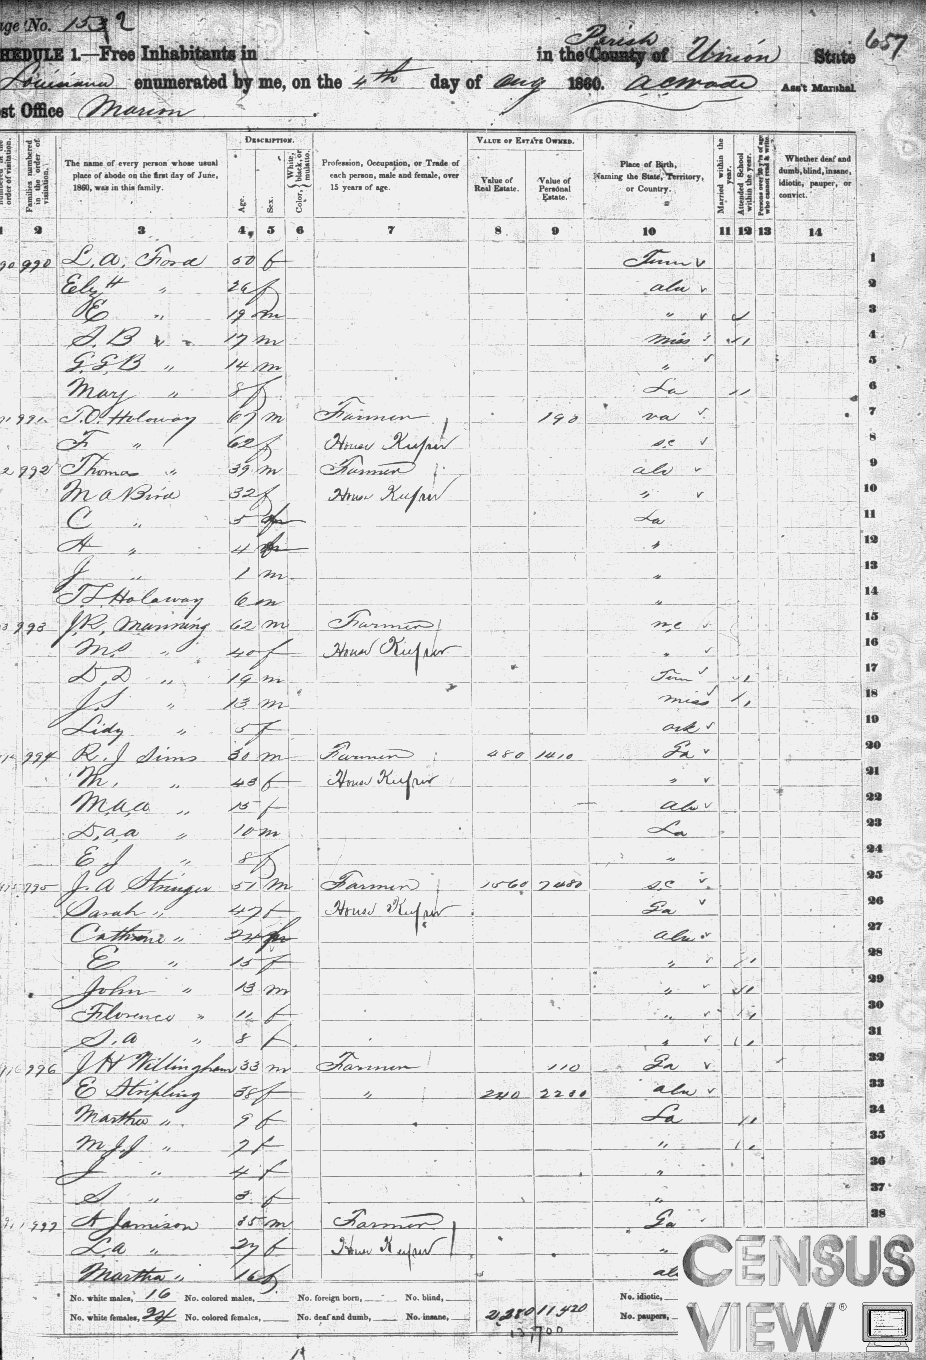 age No. 152
HEDULE 1.—Free Inhabitants in in the County of Parish Union State 657
Louisiana enumerated by me, on the 4th day of Aug 1860. Ass't Marshal.
st Office Marion
DESCRIPTION. VALUE OF ESTATE OWNED.
order of visitation. Families numbered in the order of visitation. The name of every person whose usual place of abode on the first day of June, 1860, was in this family. Age. Sex. Color, White, black, or mulatto. Profession, Occupation, or Trade of each person, male and female, over 15 years of age. Value of Real Estate. Value of Personal Estate. Place of Birth, Naming the State, Territory, or Country. Married within the year. Attended School within the year. Whether deaf and dumb, blind, insane, idiotic, pauper, or convict.
1 2 3 4 5 6 7 8 9 10 11 12 13 14
990 L. A. Ford 50 f Tenn 1
Elizth " 26 f ala 2
E " 19 m " 3
S. B " 17 m miss 4
G. G. B " 14 m " 5
Mary " 8 f La 6
991 T. O. Holoway 67 m Farmer 190 va 7
F " 62 f House Keeper s.c 8
992 Thomas " 39 m Farmer ala 9
M A Bird 32 f House Keeper " 10
C " 5 La 11
H " 4 " 12
J " 1 m " 13
T. L. Holoway 6 m " 14
993 J. R. Manning 62 m Farmer n.c 15
M. S " 40 f House Keeper " 16
D. D " 19 m Tenn 17
J. S " 13 m miss 18
Lidy " 5 f ark 19
994 R. J Sims 30 m Farmer 480 1410 Ga 20
M. " 43 f House Keeper " 21
M. a. a " 15 f ala 22
D. a. a " 10 m La 23
E J " 8 f " 24
995 J. A Stringer 51 m Farmer 1560 7480 s.c 25
Sarah " 47 f House Keeper Ga 26
Cathrine " 24 ala 27
E " 15 f " 28
John " 13 m " 29
Florence " 11 f " 30
S. a " 8 f " 31
996 J H Willingham 33 m Farmer 110 Ga 32
E Stripling 38 f " 240 2200 ala 33
Martha " 9 f La 34
M. J. J " 7 f " 35
J " 4 f " 36
S " 3 f " 37
997 A Jamison 35 m Farmer Ga 38
L. a " 27 f House Keeper "
Martha " 16 f al
No. white males, 16 No. colored males, No. foreign born, No. blind, No. idiotic,
No. white females, 24 No. colored females, No. deaf and dumb, No. insane, 2280 11420 No. paupers,
13700
CENSUS
VIEW®